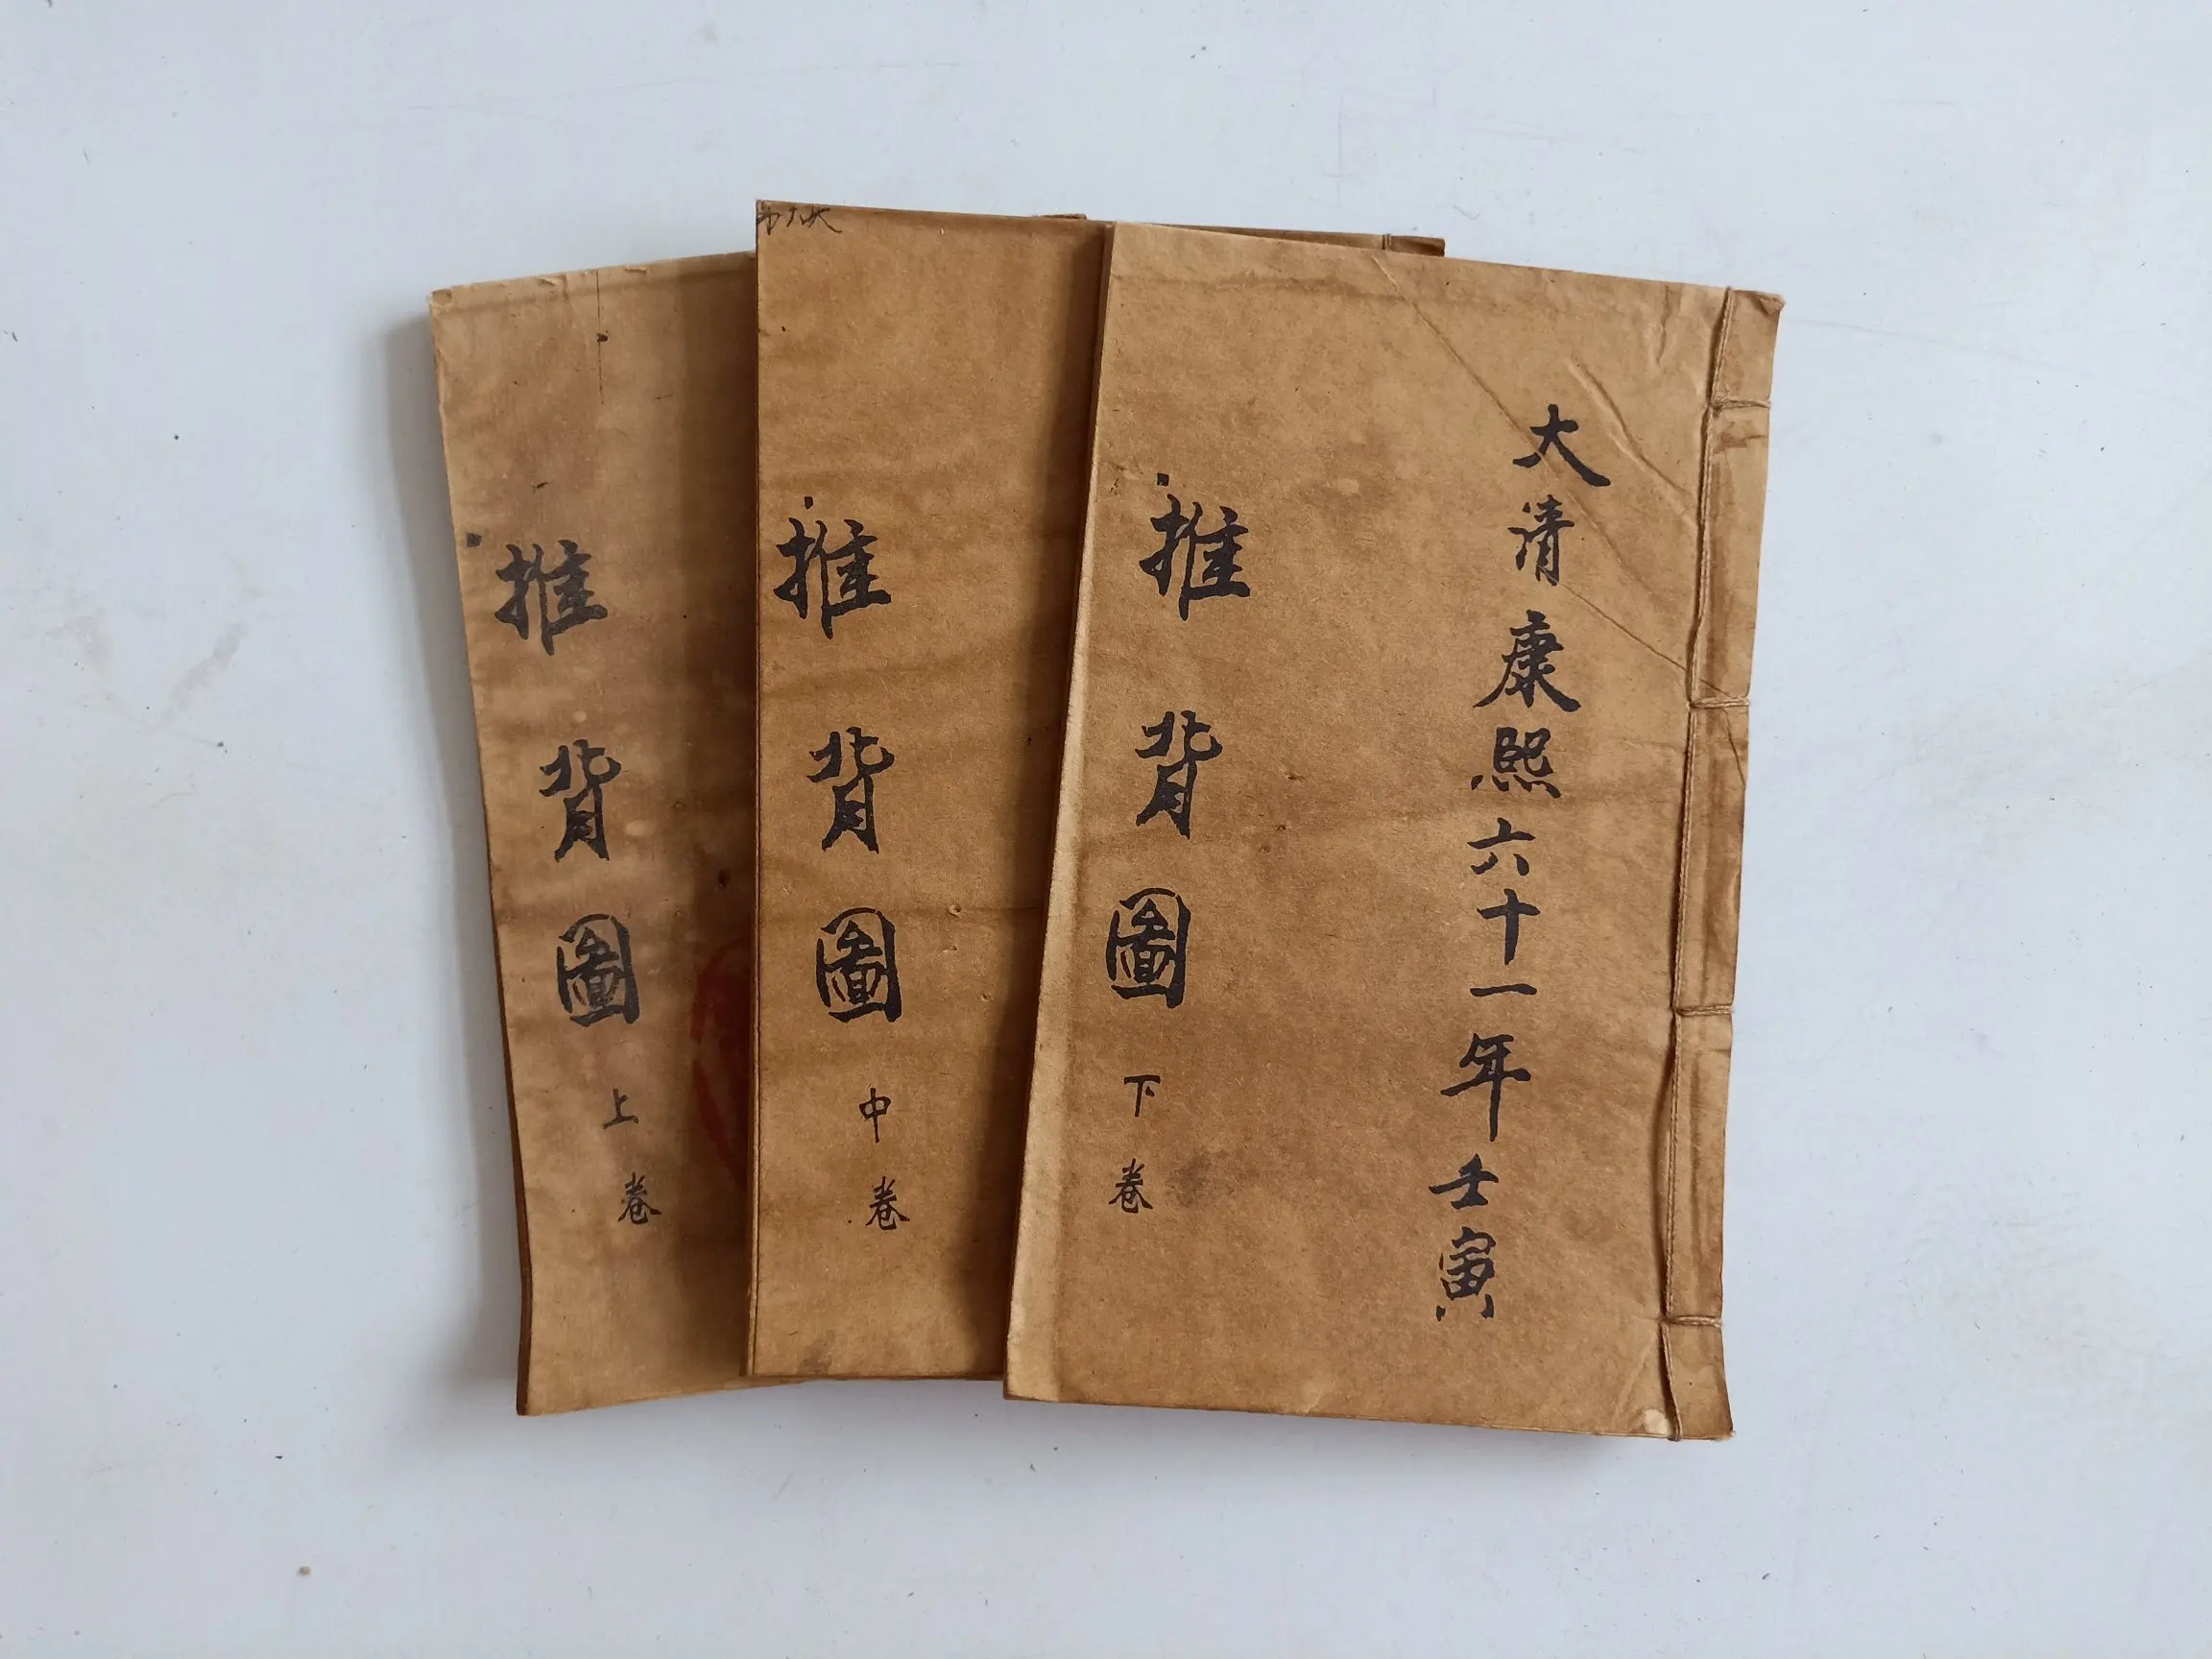 大清康熙六十一年壬寅
推背圖下卷
推背圖中卷
推背圖上卷